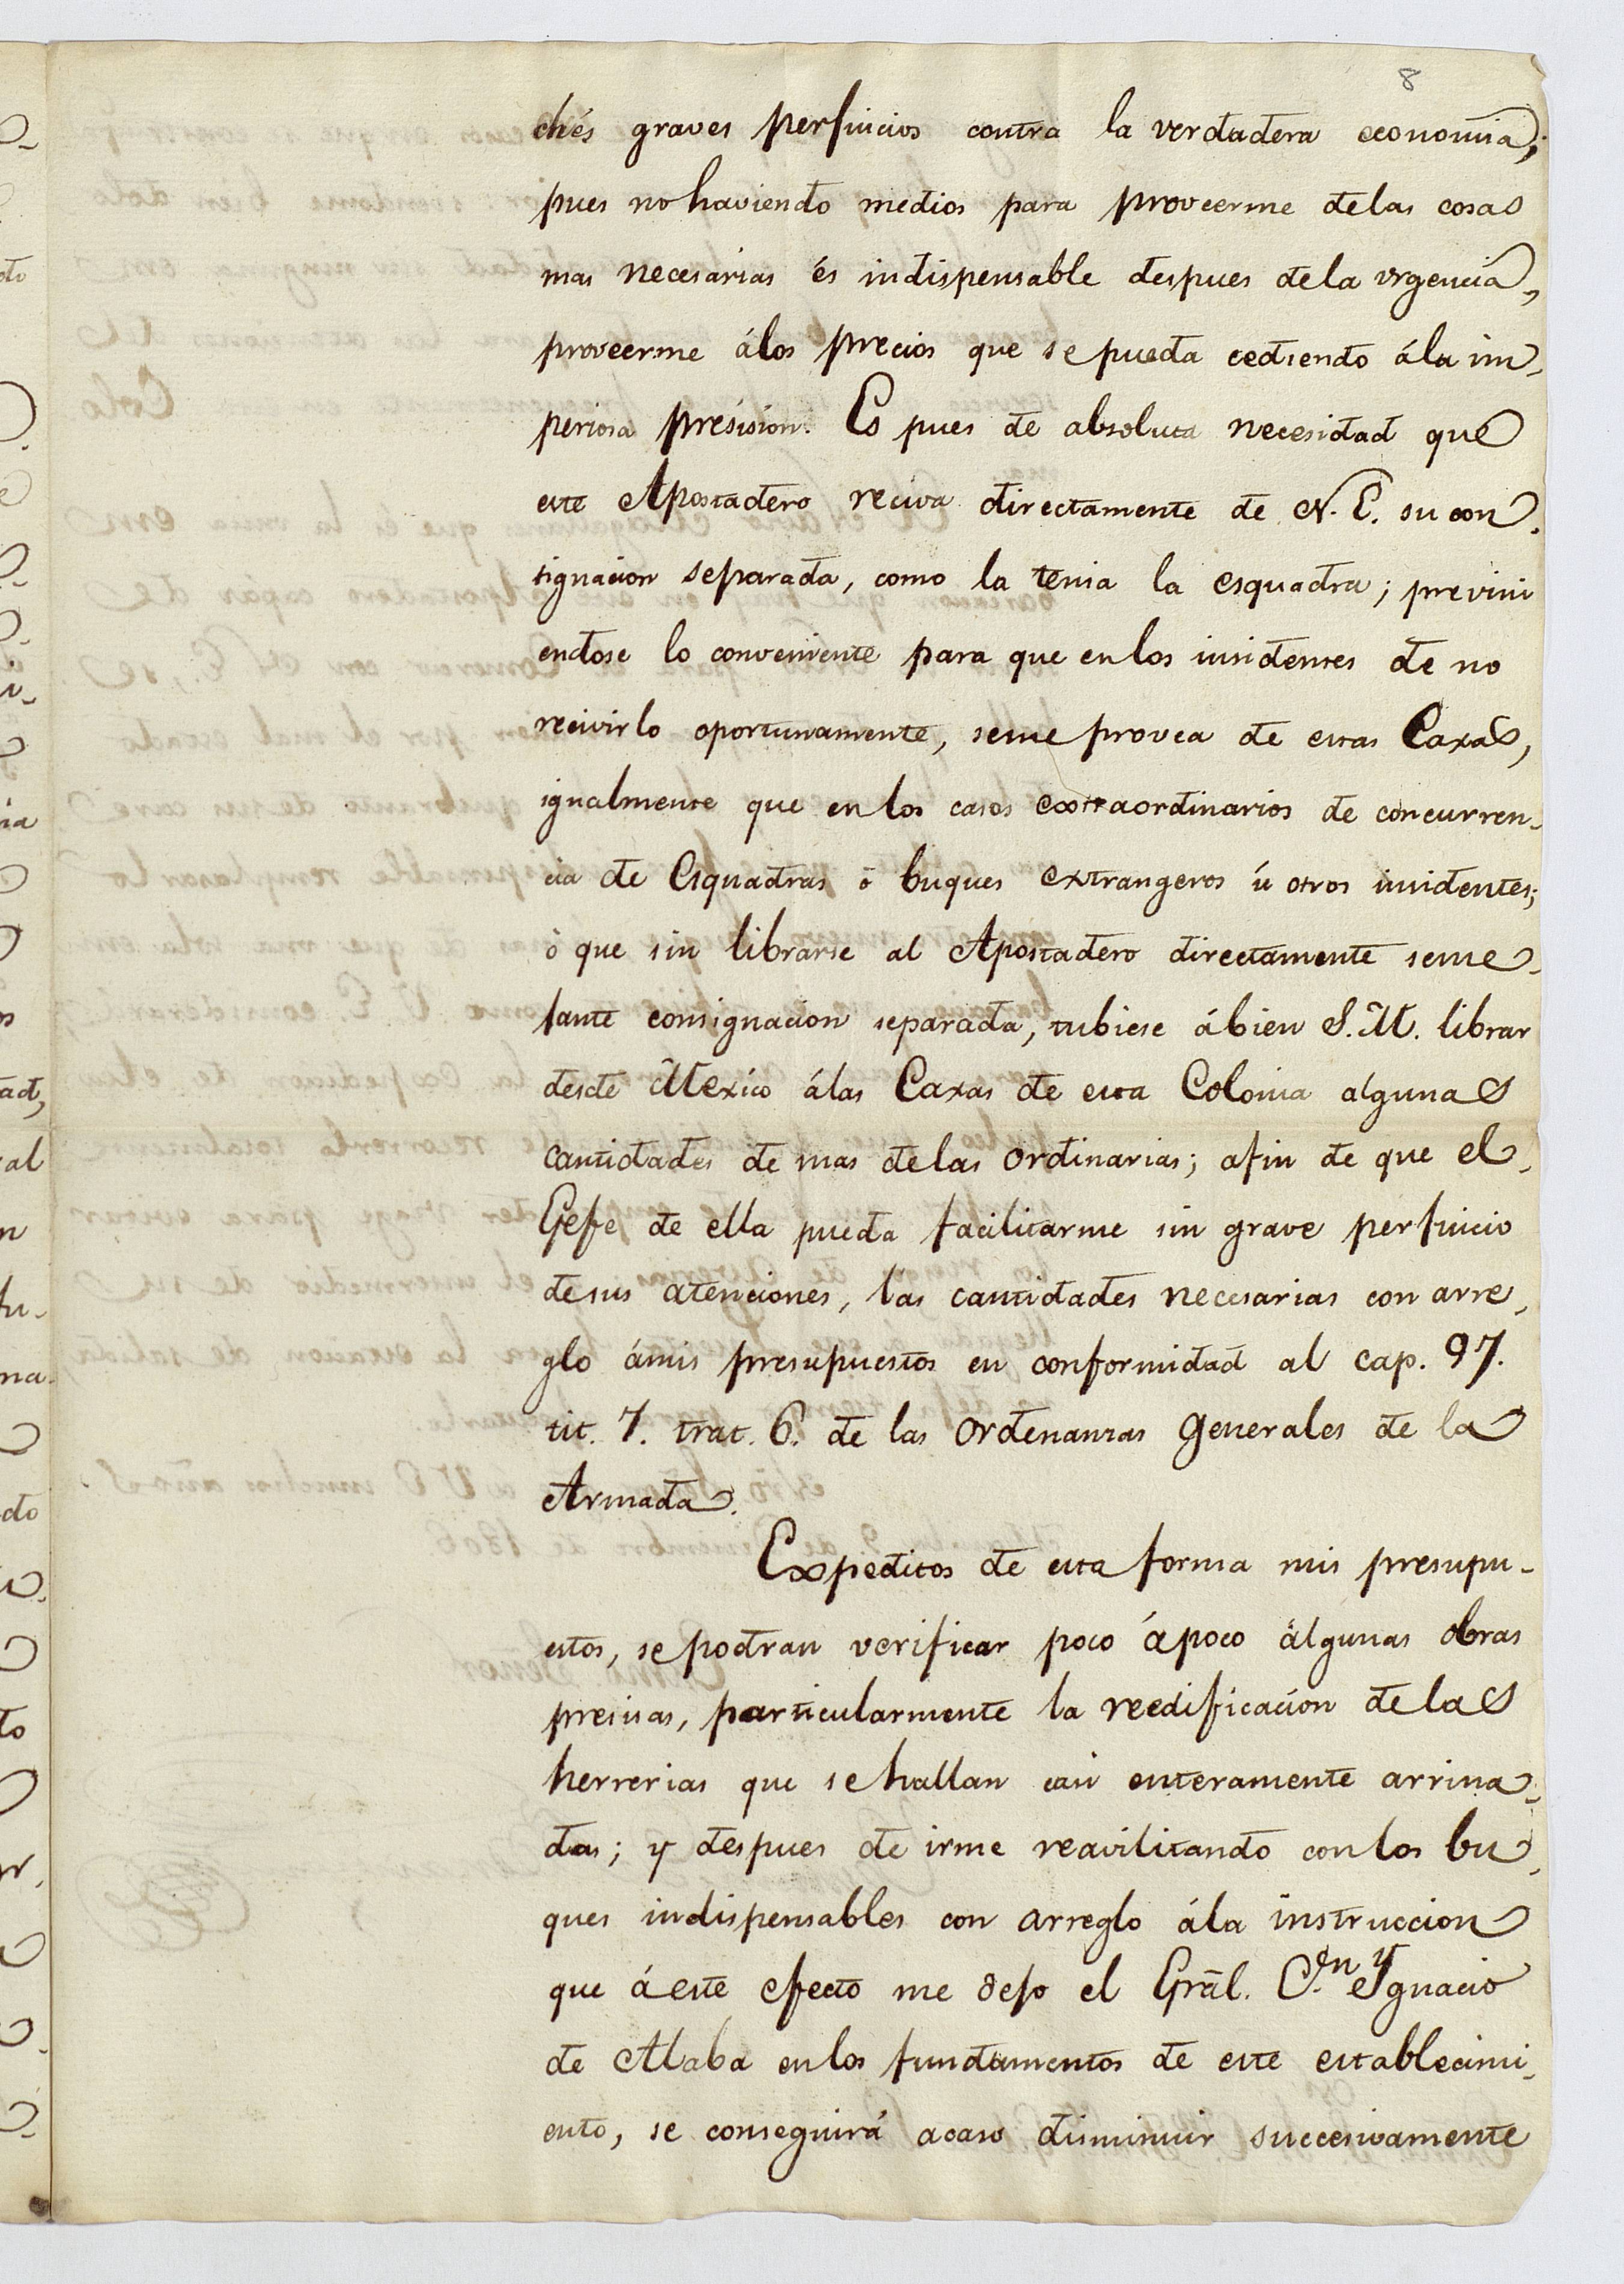 8
chés graves perjuicios contra la verdadera economia;
pues no haviendo medios para proveerme delas cosas
mas necesarias és indispensable despues dela vrgencia,
proveerme álos precios que se pueda cediendo ála im-
periosa presision. Es pues de absoluta necesidad que
este Apostadero reciva directamente de N.E. su con-
signacion separada, como la tenia la esquadra; previni
endose lo conveniente para que enlos insidentes de no
recivirlo oportunamente, seme provea de estas Caxas,
igualmente que enlos casos extraordinarios de concurren-
cia de Esquadras ó buques extrangeros ú otros insidentes;
ò que sin librarse al Apostadero directamente seme-
jante consignacion separada, tubiese ábien S.M. librar
desde Mexico álas Caxas de esta Colonia algunas
cantidades de mas delas ordinarias; afin de que el
Gefe de ella pueda facilitarme sin grave perjuicio
desus atenciones, las cantidades necesarias con arre-
glo ámis presupuestos en conformidad al cap. 97.
tit. 7. trat. 6. de las ordenanzas generales de la
Armada.
Expeditos de esta forma mis presupu-
estos, se podran verificar poco ápoco algunas obras
presisas, particularmente la reedificacion delas
herrerias que se hallan casi enteramente arruina-
das; y despues de irme reavilitando con los bu-
ques indispensables con arreglo ála instruccion
que á este efecto me dejo el Grãl. Dn. Ygnacio
de Alaba enlos fundamentos de este establecimi-
ento, se conseguirá acaso disminuir succesivamente